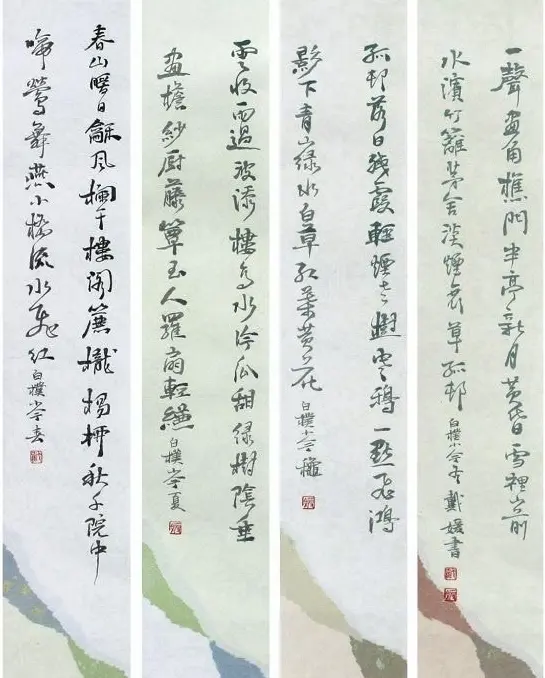 春山暖日龢風欄干樓閣簾櫳楊柳秋千院中
啼鶯舞燕小橋流水飛紅 白樸小令春
雲收雨過波添樓高水冷瓜甜綠樹陰垂
畫檐紗厨藤簟玉人羅扇輕縑 白樸小令夏
孤邨落日殘霞輕煙老樹寒鴉一點飛鴻
影下青山綠水白草紅葉黃花 白樸小令穐
一聲畫角樵門半亭新月黃昏雪裡山前
水濱竹籬茅舍淡煙衰草孤邨 白樸小令冬戴媛書